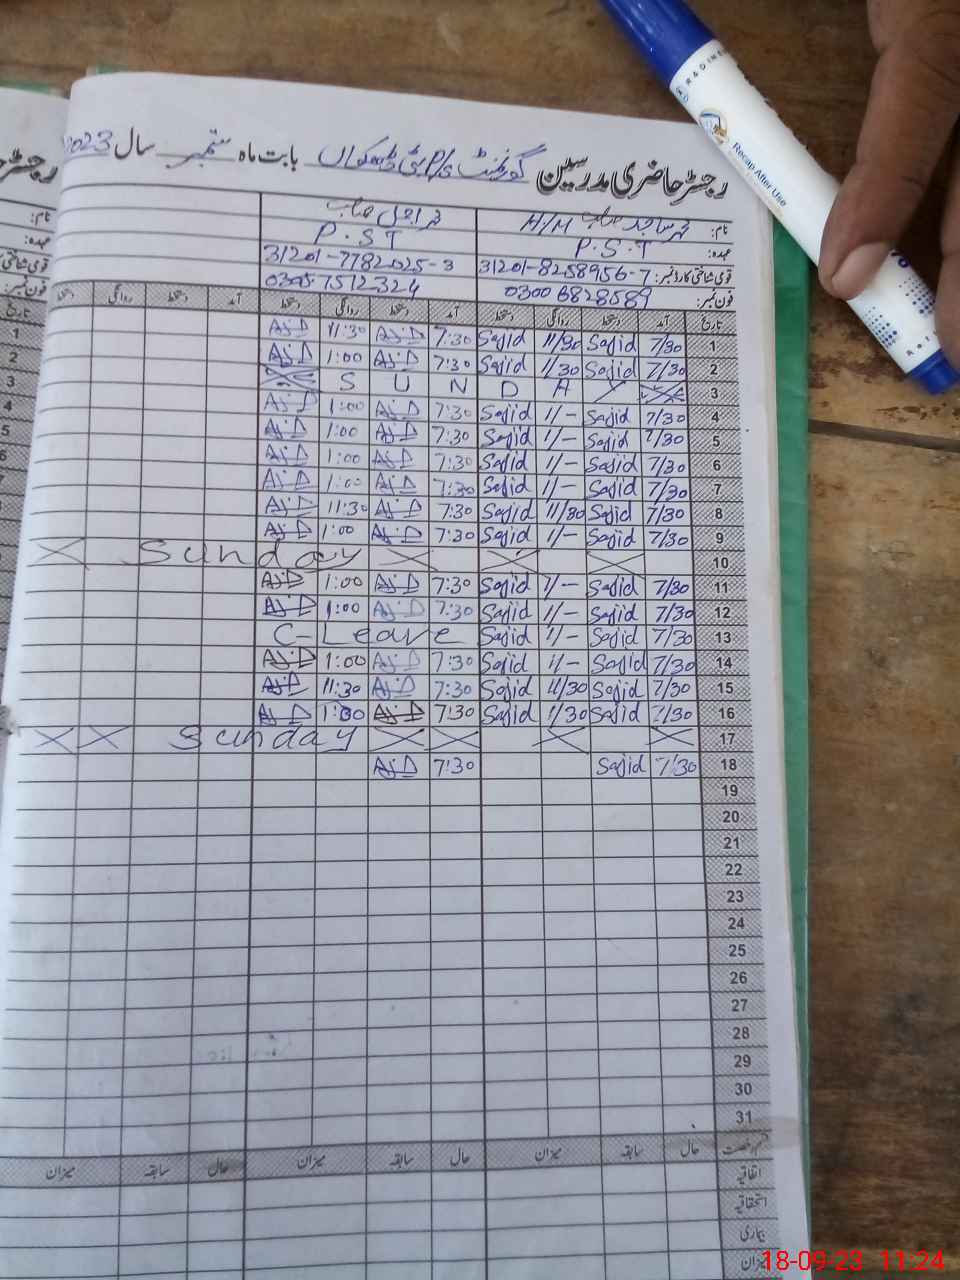 رجسٹر حاضری مدرسین گورنمنٹ P/S بابت ماہ ستمبر سال 2023
نام: محمد ساجد صاحب H/M محمد اجمل صاحب
عہدہ: P.S.T P.S.T
قومی شناختی کارڈ نمبر: 31201-8258956-7 31201-7782025-3
فون نمبر: 03006828589 03057512324
تاریخ آمد دستخط روانگی دستخط آمد دستخط روانگی دستخط آمد دستخط روانگی دستخط
1 7/30 Sajid 11/30 Sajid 7:30 11:30
2 7/30 Sajid 1/30 Sajid 7:30 1:00
3 S U N D A Y
4 7/30 Sajid 1/- Sajid 7:30 1:00
5 7/30 Sajid 1/- Sajid 7:30 1:00
6 7/30 Sajid 1/- Sajid 7:30 1:00
7 7/30 Sajid 1/- Sajid 7:30 1:00
8 7/30 Sajid 11/30 Sajid 7:30 11:30
9 7/30 Sajid 1/- Sajid 7:30 1:00
10 Sunday
11 7/30 Sajid 1/- Sajid 7:30 1:00
12 7/30 Sajid 1/- Sajid 7:30 1:00
13 7/30 Sajid 1/- Sajid C-Leave
14 7/30 Sajid 1/- Sajid 7:30 1:00
15 7/30 Sajid 11/30 Sajid 7:30 11:30
16 7/30 Sajid 1/30 Sajid 7:30 1:00
17 Sunday
18 7/30 Sajid 7:30
19
20
21
22
23
24
25
26
27
28
29
30
31
قسم رخصت حال سابقہ میزان حال سابقہ میزان حال سابقہ میزان
اتفاقیہ
استحقاقیہ
بیماری
میزان
Recap After Use
18-09-23 11:24